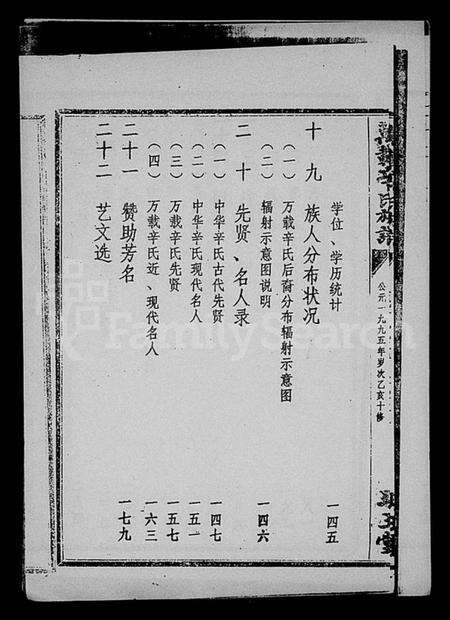 万载辛氏族谱
公元一九九五年岁次乙亥十修
学位、学历统计 一四五
十九 族人分布状况
(一) 万载辛氏后裔分布辐射示意图
(二) 辐射示意图说明 一四六
二十 先贤、名人录
(一) 中华辛氏古代先贤 一四七
(二) 中华辛氏现代名人 一五一
(三) 万载辛氏先贤 一五七
(四) 万载辛氏近、现代名人 一六三
二十一 赞助芳名 一七九
二十二 艺文选
FamilySearch